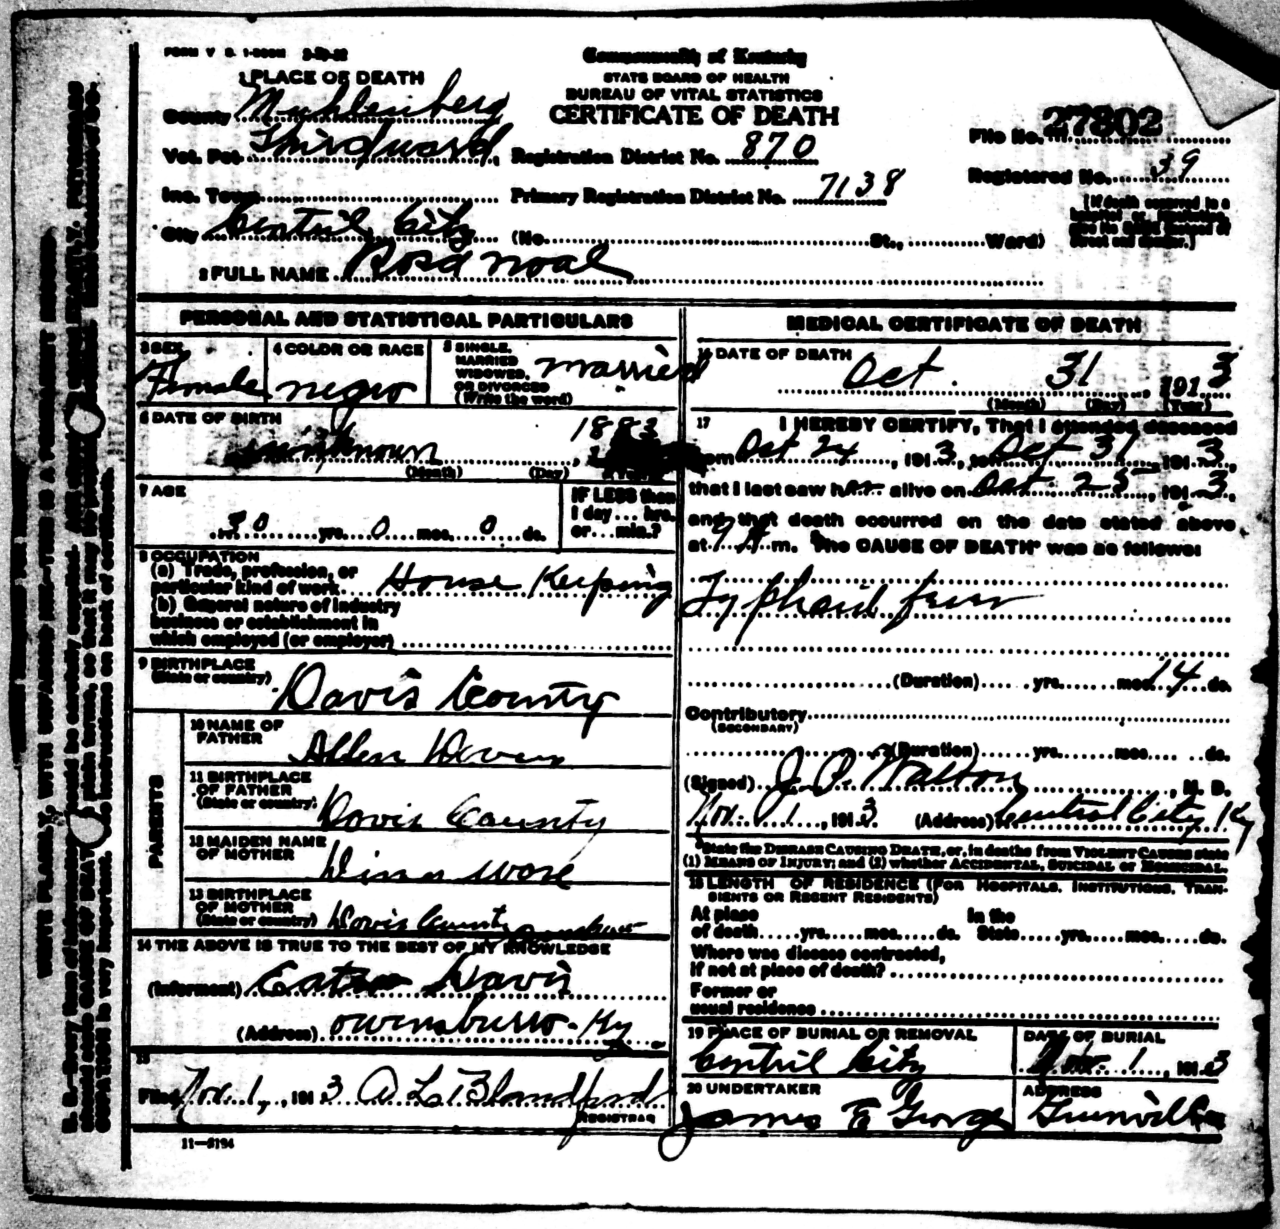 FORM V. S. 1-500M
Commonwealth of Kentucky
STATE BOARD OF HEALTH
BUREAU OF VITAL STATISTICS
CERTIFICATE OF DEATH
1 PLACE OF DEATH
County Muhlenberg
Vot. Pct. Third ward
Inc. Town
City Centril City (No. St., Ward)
Registration District No. 870
Primary Registration District No. 7138
File No. 27802
Registered No. 39
[If death occurred in a hospital or institution, give its NAME instead of street and number.]
2 FULL NAME Rosa Noal
PERSONAL AND STATISTICAL PARTICULARS
3 SEX Female
4 COLOR OR RACE negro
5 SINGLE, MARRIED, WIDOWED, OR DIVORCED (Write the word) married
6 DATE OF BIRTH unknown 1883
(Month) (Day)
7 AGE 30 yrs. 0 mos. 0 ds.
IF LESS than 1 day ... hrs. or ... min.?
8 OCCUPATION
(a) Trade, profession, or particular kind of work House Keeping
(b) General nature of industry
business or establishment in
which employed (or employer)
9 BIRTHPLACE
(State or country) Davis County
PARENTS
10 NAME OF FATHER Allen
11 BIRTHPLACE OF FATHER (State or country) Davis County
12 MAIDEN NAME OF MOTHER
13 BIRTHPLACE OF MOTHER (State or country) Davis County
14 THE ABOVE IS TRUE TO THE BEST OF MY KNOWLEDGE
(Informant) Davis
(Address) Owensburro - Ky
15
Filed Nov. 1, 1913 A L Blandford
REGISTRAR
11-5194
MEDICAL CERTIFICATE OF DEATH
16 DATE OF DEATH
Oct. 31, 1913
(Month) (Day) (Year)
17 I HEREBY CERTIFY, That I attended deceased
from Oct 24, 1913, to Oct 31, 1913,
that I last saw her alive on Oct 25, 1913,
and that death occurred on the date stated above
at m. The CAUSE OF DEATH* was as follows:
Typhoid fever
(Duration) yrs. mos. 14 ds.
Contributory
(SECONDARY)
(Duration) yrs. mos. ds.
(Signed) J. P. Walton, M. D.
Nov. 1, 1913 (Address) Central City Ky
*State the DISEASE CAUSING DEATH, or, in deaths from VIOLENT CAUSES state
(1) MEANS OF INJURY; and (2) whether ACCIDENTAL, SUICIDAL or HOMICIDAL.
18 LENGTH OF RESIDENCE (FOR HOSPITALS, INSTITUTIONS, TRANSIENTS OR RECENT RESIDENTS)
At place of death yrs. mos. ds. In the State yrs. mos. ds.
Where was disease contracted,
if not at place of death?
Former or
usual residence
19 PLACE OF BURIAL OR REMOVAL
Centril City
DATE OF BURIAL
Nov. 1, 1913
20 UNDERTAKER
James E George
ADDRESS